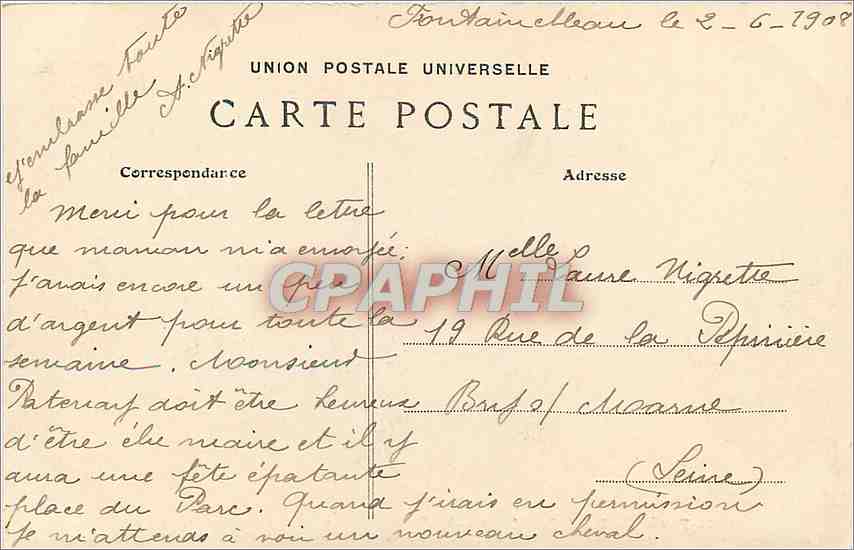 Fontainebleau le 2-6-1908
J'embrasse toute
la famille
A. Nigrette
UNION POSTALE UNIVERSELLE
CARTE POSTALE
Correspondance
Adresse
Merci pour la lettre
que maman m'a envoyée;
j'avais encore un peu
d'argent pour toute la
semaine. Monsieur
doit être heureux
d'être élu maire et il y
aura une fête épatante
place du Parc. Quand j'irais en permission
je m'attends à voir un nouveau cheval.
Melle Laure Nigrette
19 Rue de la Pépinière
Bry s/ Marne
(Seine)
CPAPHIL